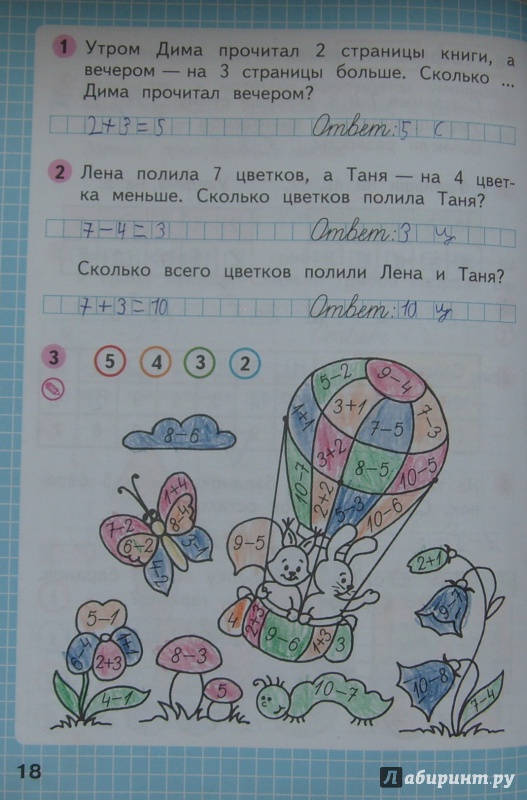 1 Утром Дима прочитал 2 страницы книги, а
вечером — на 3 страницы больше. Сколько ...
Дима прочитал вечером?
2+3=5 Ответ: 5 с
2 Лена полила 7 цветков, а Таня — на 4 цвет-
ка меньше. Сколько цветков полила Таня?
7-4=3 Ответ: 3 ц
Сколько всего цветков полили Лена и Таня?
7+3=10 Ответ: 10 ц
3 5 4 3 2
5-2 9-4
1+1 3+1 7-5 7-3
8-6
3+2 8-5 10-5
10-7 2+2 5-3 10-6
1+4
7-2 8-4
6-2 3-1
4-2
9-5
2+1
9-7
4 2+3 9-6 1+3 3
5-1
6-4 2+3 1+1
8-3
10-8
4-1 5 10-7 7-4
18
Лабиринт.ру